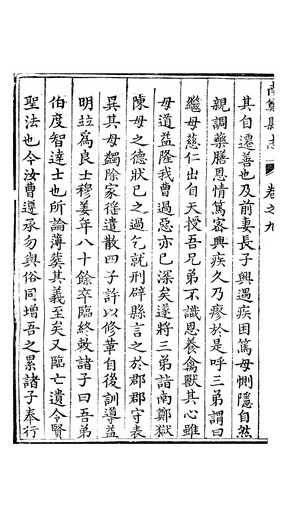 南鄭縣志 卷之九
其自遷善也及前妻長子興過疾困篤母惻隱自然
親調藥膳恩情篤密興疾久乃瘳於是呼三弟謂曰
繼母慈仁出自天授吾兄弟不識恩養禽獸其心雖
母道益隆我曹過惡亦已深矣遂將三弟詣南鄭獄
陳母之德狀已之過乞就刑辟縣言之於郡郡守表
異其母蠲除家徭遣散四子許以修革自後訓導益
明竝爲良士穆姜年八十餘卒臨終敕諸子曰吾弟
伯度智達士也所論薄葬其義至矣又臨亡遺令賢
聖法也令汝曹遵承勿與俗同增吾之累諸子奉行